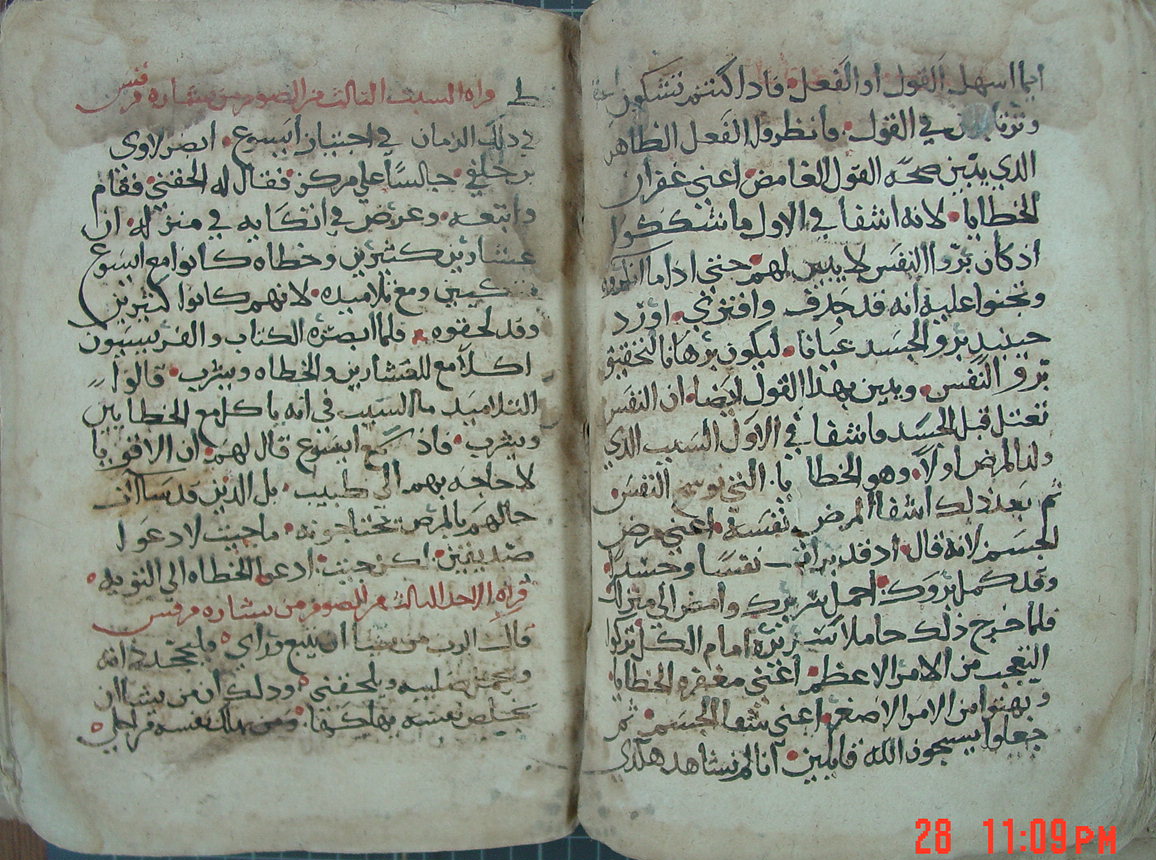 ايما اسهل القول او الفعل فاذا كنتم تشكون
في القول فانظروا الفعل الظاهر
الذي يبين صحة القول الغامض اعني غفران
الخطايا لانه اشفا في الاول ما تشككوا
اذ كان برو النفس لا يبين لهم حتى اذا ما
وتجنوا عليه انه قد جدف وافترى اورد
حينيذ برو الجسد عيانا ليكون برهانا لتحقيق
برو النفس ويبين بهذا القول ايضا ان النفس
تعتل قبل الجسد فاشفا في الاول السبب الذي
ولد المرض اولا وهو الخطايا التي توسخ النفس
ثم بعد ذلك اشفا المرض نفسه اعني مرض
الجسم لانه قال اذ قد برات نفسا وجسدا
وقد كمل بروك احمل سريرك وامض الى منزلك
فلما خرج ذلك حاملا سريره امام الكل تركوا
التعجب من الامر الاعظم اعني مغفرة الخطايا
وبهتوا من الامر الاصغر اعني شفا الجسم ثم
جعلوا يسبحون الله قايلين اننا لم نشاهد هكذى
قراه السبت الثالث من الصوم من بشاره مرقس
في ذلك الزمان في اجتياز ايسوع ابصر لاوي
بن حلفي جالسا على مركز فقال له الحقني فقام
واتبعه وعرض في اتكايه في منزله ان
عشارين كثيرين وخطاه كانوا مع ايسوع
متكيين ومع تلاميذه لانهم كانوا كثيرين
وقد لحقوه فلما ابصره الكتاب والفريسيون
اكلا مع العشارين والخطاه ويشرب قالوا
للتلاميذ ما السبب في انه ياكل مع الخطايين
ويشرب فاذ سمع ايسوع قال لهم ان الاقويا
لا حاجه بهم الى طبيب بل الذين قد سات
حالهم بالمرض تحتاجونه ما جيت لادعوا
صديقين لكن جيت ادعوا الخطاه الى التوبه
قراه الاحد الثالث من الصوم من بشاره مرقس
قال الرب من يشا ان يتبع وراي فليجحد ذاته
ويحمل صليبه ويلحقني وذلك ان من يشا ان
يخلص نفسه يهلكها ومن يهلك نفسه من اجلي